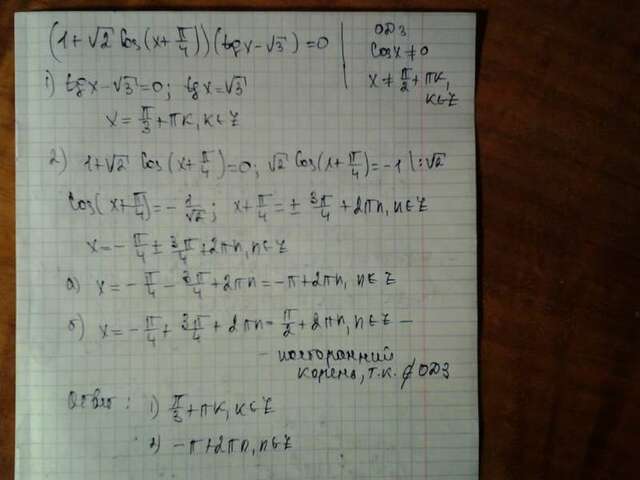 (1+√2 cos(x+π/4))(tgx-√3)=0
ОДЗ
cosx≠0
x≠π/2+πk,
k∈Z
1) tgx-√3=0; tgx=√3
x=π/3+πk, k∈Z
2) 1+√2 cos(x+π/4)=0; √2 cos(x+π/4)=-1 |:√2
cos(x+π/4)=-1/√2; x+π/4=± 3π/4 +2πn, n∈Z
x=-π/4 ± 3π/4+2πn, n∈Z
а) x=-π/4-3π/4+2πn=-π+2πn, n∈Z
б) x=-π/4+3π/4+2πn=π/2+2πn, n∈Z -
- посторанний
корень, т.к. ∉ ОДЗ
Ответ: 1) π/3+πk, k∈Z
2) -π+2πn, n∈Z